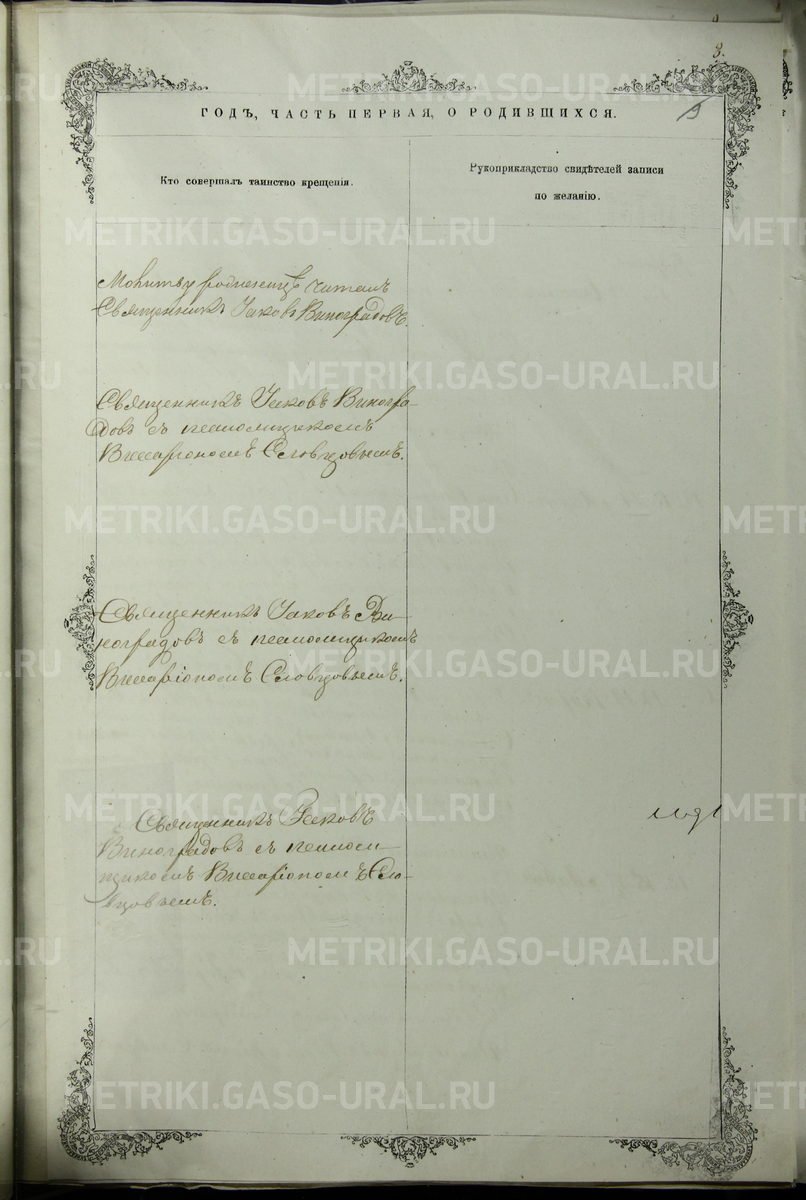 3.
ГОДЪ, ЧАСТЬ ПЕРВАЯ, О РОДИВШИХСЯ.
Кто совершалъ таинство крещенія.
Рукоприкладство свидѣтелей записи
по желанію.
Молитву родительницѣ читалъ
Священникъ Іаковъ Виноградовъ.
Священникъ Іаковъ Виногра-
довъ съ псаломщикомъ
Виссаріономъ Словцовымъ.
Священникъ Іаковъ Ви-
ноградовъ съ псаломщикомъ
Виссаріономъ Словцовымъ.
Священникъ Іаковъ
Виноградовъ съ псалом-
щикомъ Виссаріономъ Сло-
вцовымъ.
METRIKI.GASO-URAL.RU